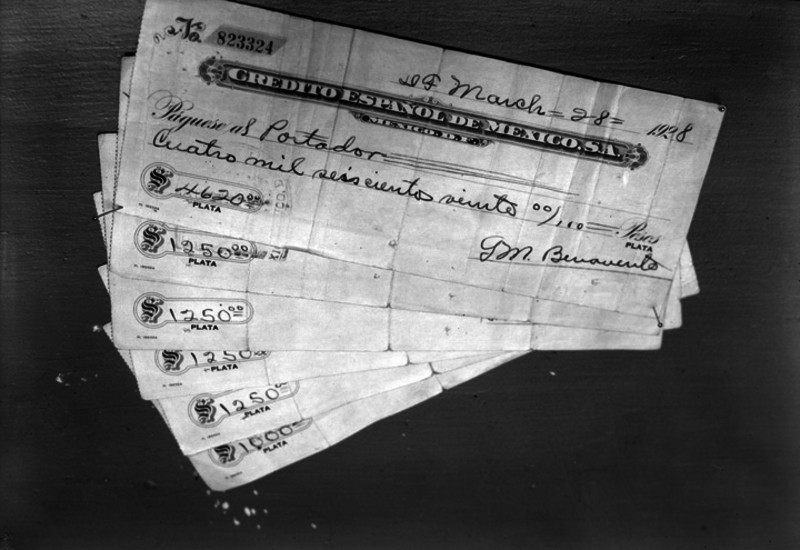 No. 823324
CREDITO ESPAÑOL DE MEXICO, S.A.
MEXICO, D.F.
D F March = 28 = 1928
Páguese al Portador
Cuatro mil seiscientos veinte 00/100 Pesos
PLATA
$ 4620.00
PLATA
G M. Benavente
$ 1250.00
PLATA
$ 1250.00
PLATA
$ 1250.00
PLATA
$ 1250.00
PLATA
$ 1000
PLATA